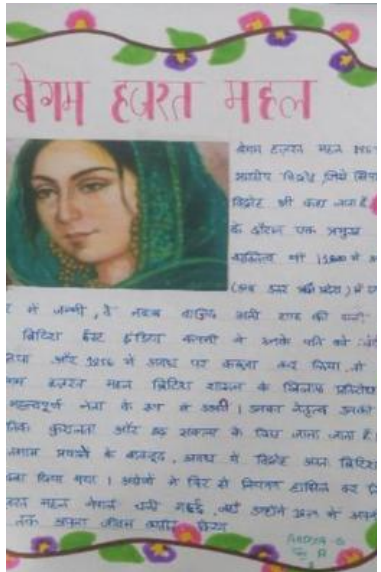 बेगम हज़रत महल
बेगम हज़रत महल
भारतीय विद्रोह, जिसे
विद्रोह भी कहा जाता है
के दौरान एक प्रमुख
में जन्मी, वे नवाब वाजिद अली शाह की पत्नी
ब्रिटिश ईस्ट इंडिया कंपनी ने उनके पति को
और 1856 में अवध पर कब्जा कर लिया, तो
हज़रत महल ब्रिटिश शासन के खिलाफ प्रतिरोध
महत्वपूर्ण नेता के रूप में उभरी। उनका नेतृत्व उनकी
कुशलता और दृढ़ संकल्प के लिए जाना जाता है।
तमाम प्रयासों के बावजूद, अवध में विद्रोह
दिया गया। अंग्रेजों ने फिर से नियंत्रण हासिल कर
महल नेपाल चली गई, जहाँ उन्होंने
तक अपना जीवन व्यतीत किया